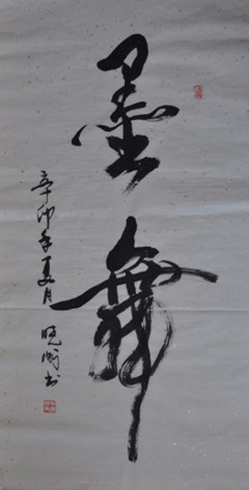 墨舞
辛卯年夏月 晓书